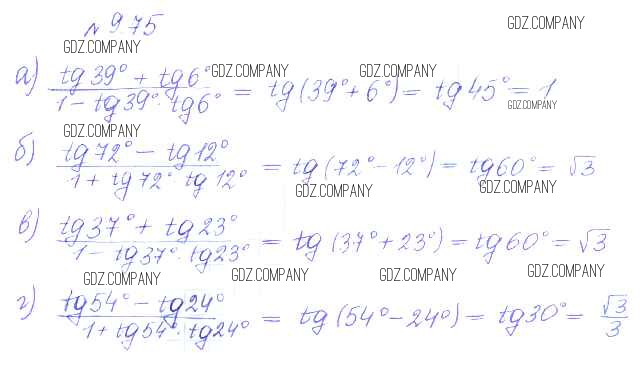 № 9.75
GDZ.COMPANY
GDZ.COMPANY
а) (tg39° + tg6°)/(1 - tg39°·tg6°) = tg(39°+6°) = tg45° = 1
GDZ.COMPANY GDZ.COMPANY
GDZ.COMPANY
GDZ.COMPANY
б) (tg72° - tg12°)/(1 + tg72° tg12°) = tg(72°-12°) = tg60° = √3
GDZ.COMPANY GDZ.COMPANY
в) (tg37° + tg23°)/(1 - tg37°·tg23°) = tg(37°+23°) = tg60° = √3
GDZ.COMPANY GDZ.COMPANY GDZ.COMPANY GDZ.COMPANY
г) (tg54° - tg24°)/(1 + tg54°·tg24°) = tg(54°-24°) = tg30° = √3/3